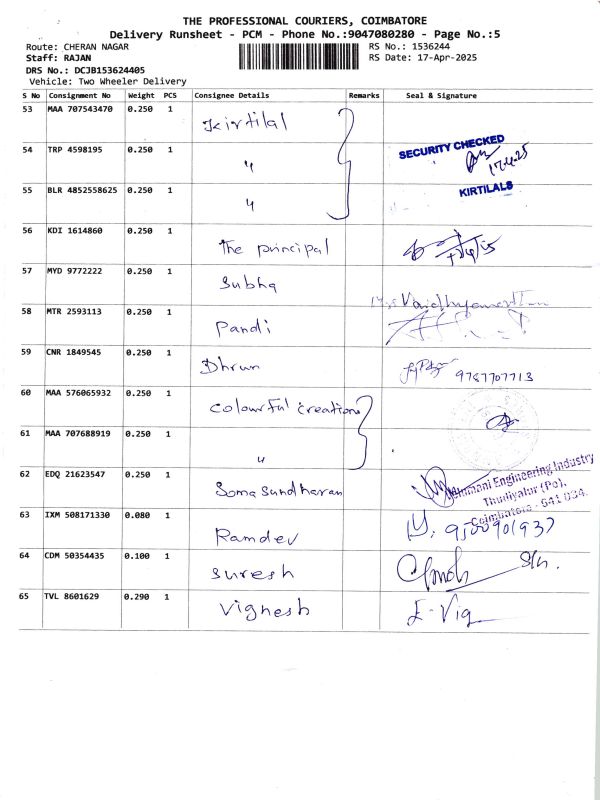 THE PROFESSIONAL COURIERS, COIMBATORE
Delivery Runsheet - PCM - Phone No.:9047080280 - Page No.:5
Route: CHERAN NAGAR RS No.: 1536244
Staff: RAJAN RS Date: 17-Apr-2025
DRS No.: DCJB153624405
Vehicle: Two Wheeler Delivery
S No Consignment No Weight PCS Consignee Details Remarks Seal & Signature
53 MAA 707543470 0.250 1 Kirtilal
54 TRP 4598195 0.250 1 " SECURITY CHECKED
17.4.25
55 BLR 4852558625 0.250 1 " KIRTILALS
56 KDI 1614860 0.250 1 The principal
57 MYD 9772222 0.250 1 Subha
58 MTR 2593113 0.250 1 Pandi
59 CNR 1849545 0.250 1 Dhruv 9787707713
60 MAA 576065932 0.250 1 Colourful creation
61 MAA 707688919 0.250 1 "
62 EDQ 21623547 0.250 1 Soma Sundharan Engineering Industry
Thudiyalur (Po),
Coimbatore - 641 034.
63 IXM 508171330 0.080 1 Ramdev 9500901937
64 CDM 50354435 0.100 1 Suresh
65 TVL 8601629 0.290 1 Vignesh E-Vig